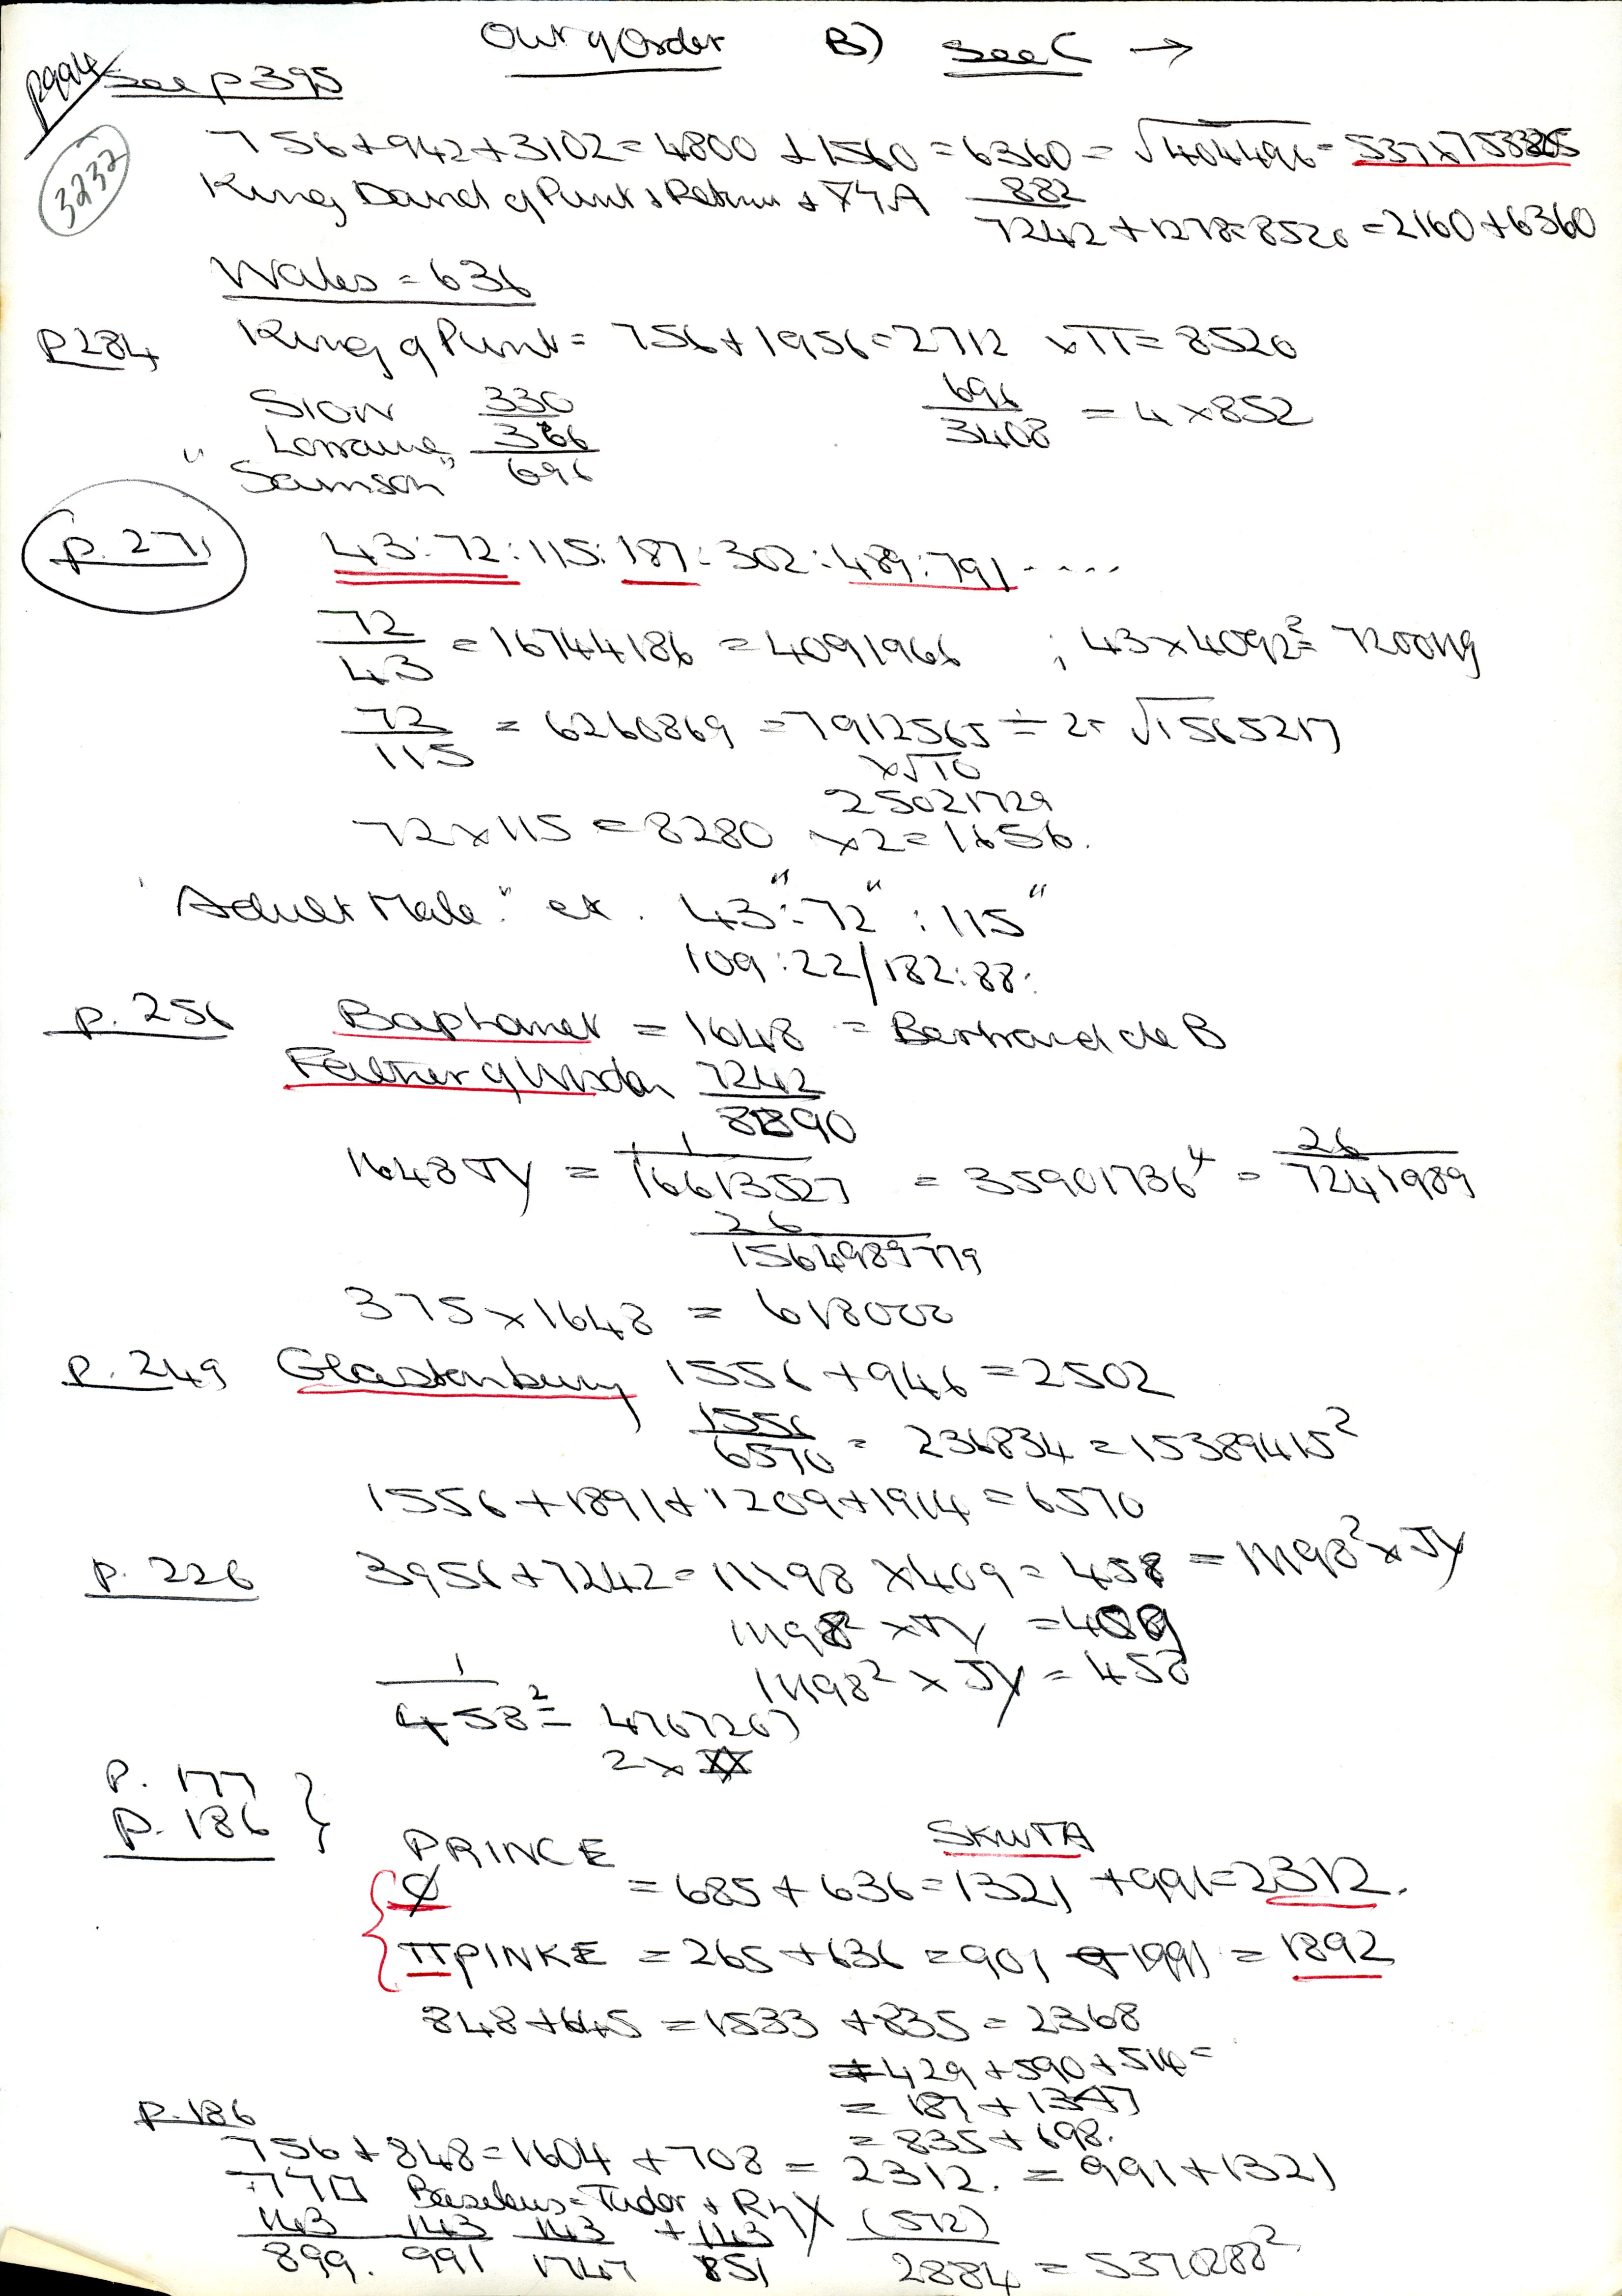 Out of Order B) See C →
p994 See p 395
3232
756+942+3102=4800 +1560=6360=√404496=
King David of Punt & Return + 882
7242+1278=8520=2160+6360
Wales = 636
p284 King of Punt = 756+1956=2712 ×π=8520
Sion 330 696
"Lorraine 366 3408 = 4×852
Samson" 696
p. 271 43:72:115:187:302:489:791....
72/43 = 16744186 = 4091966 ; 43×4092²=
72/115 = 6260869 = 7912565 ÷ 2= √1565217
×√10
25021729
72×115 = 8280 ×2=1656.
"Adult Male" ex. 43":72":115"
109:22/182:88:
p. 256 Baphomet = 1648 = Bertrand de B
Father of Wisdom 7242
8890
1648 JY = 1/16613527 = 35901736⁴ = 26/7241989
26/1564989779
375×1648 = 618000
p. 249 Glastonbury 1556+946=2502
1556/6570 = 236834 = 15389415²
1556+1891+1209+1914=6570
p. 226 3956+7242=11198 ×409=458 = 11198²×JY
11198² ×JY =
11198² × JY = 458
1/458² = 4767267
2×
p. 177
p. 186 }
PRINCE SKWTA
= 685+636=1321 +991=2312.
ΠPINKE = 265+636=901 +991 = 1892
848+ =1533 +835=2368
+429+590+514=
= 187+1347
p.186 = 835+698.
756+848=1604+708 = 2312. = 991+1321
Baseleus=Tudor +
143 143 143 +143 (572)
899. 991 1747 851 2884 = 5370288²